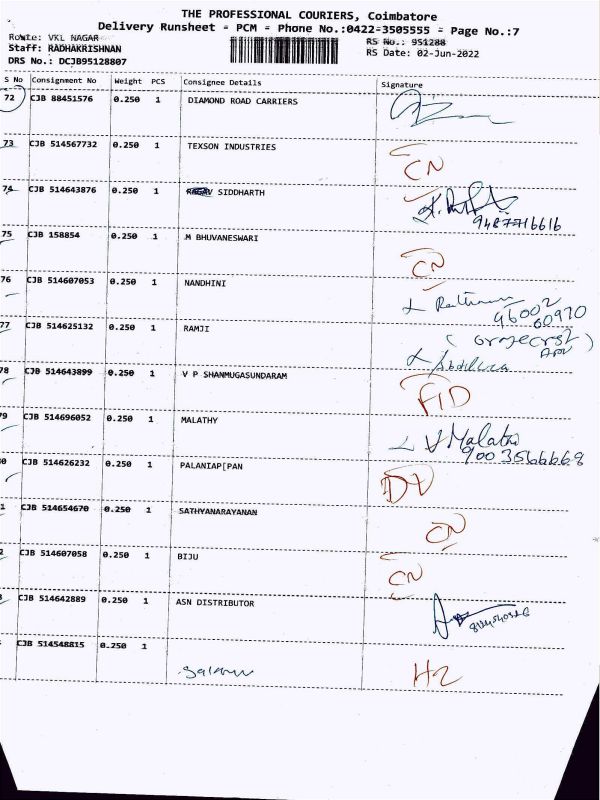 THE PROFESSIONAL COURIERS, Coimbatore
Delivery Runsheet - PCM - Phone No.:0422-3505555 - Page No.:7
Route: VKL NAGAR
RS No.: 951288
Staff: RADHAKRISHNAN
RS Date: 02-Jun-2022
DRS No.: DCJB95128807
S No Consignment No Weight PCS Consignee Details Signature
72 CJB 88451576 0.250 1 DIAMOND ROAD CARRIERS
73 CJB 514567732 0.250 1 TEXSON INDUSTRIES CN
74 CJB 514643876 0.250 1 RAGAV SIDDHARTH
9487716616
75 CJB 158854 0.250 1 M BHUVANESWARI CN
76 CJB 514607053 0.250 1 NANDHINI
96002
60970
77 CJB 514625132 0.250 1 RAMJI
78 CJB 514643899 0.250 1 V P SHANMUGASUNDARAM FID
79 CJB 514696052 0.250 1 MALATHY V Malathi
9003566668
0 CJB 514626232 0.250 1 PALANIAP[PAN
1 CJB 514654670 0.250 1 SATHYANARAYANAN CN
2 CJB 514607058 0.250 1 BIJU CN
CJB 514642889 0.250 1 ASN DISTRIBUTOR
CJB 514548815 0.250 1